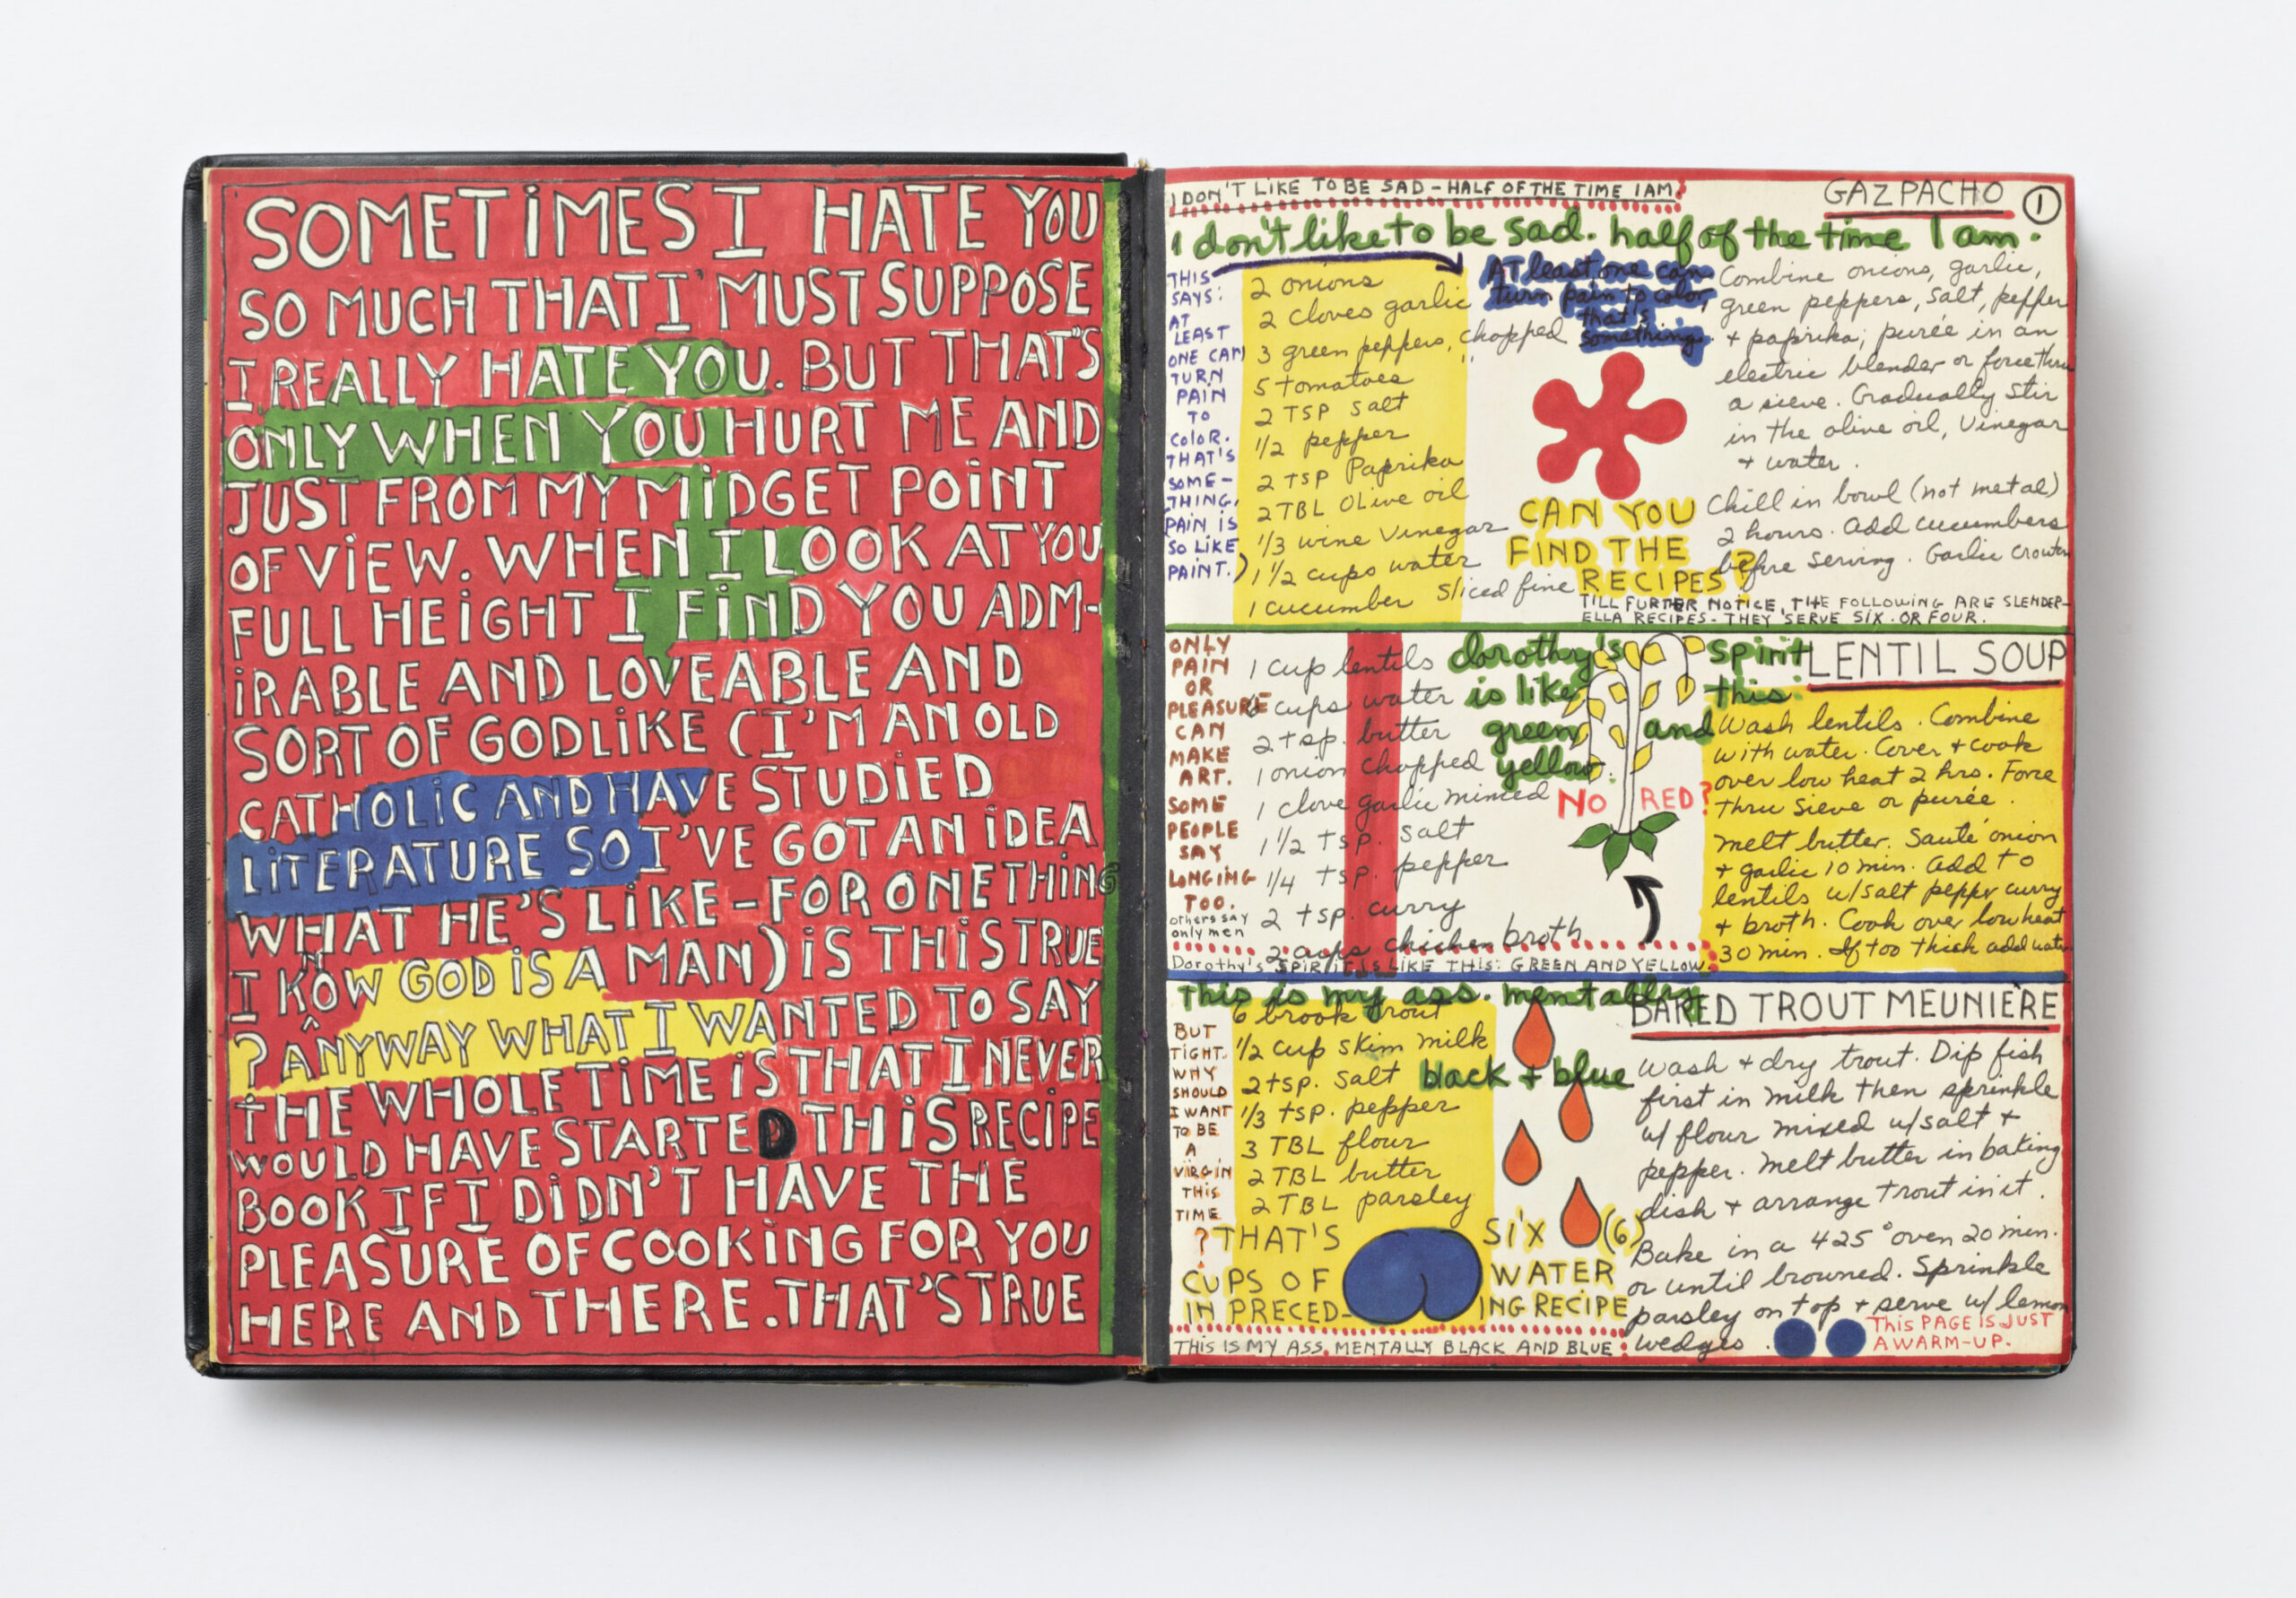 SOMETIMES I HATE YOU
SO MUCH THAT I' MUST SUPPOSE
I REALLY HATE YOU. BUT THAT'S
ONLY WHEN YOU HURT ME AND
JUST FROM MY MIDGET POINT
OF VIEW. WHEN I LOOK AT YOU
FULL HEIGHT I FIND YOU ADM-
IRABLE AND LOVEABLE AND
SORT OF GODLIKE (I'M AN OLD
CATHOLIC AND HAVE STUDIED
LITERATURE SO I'VE GOT AN IDEA
WHAT HE'S LIKE-FOR ONE THING
I KNOW GOD IS A MAN) IS THIS TRUE
? ANYWAY WHAT I WANTED TO SAY
THE WHOLE TIME IS THAT I NEVER
WOULD HAVE STARTED THIS RECIPE
BOOK IF I DIDN'T HAVE THE
PLEASURE OF COOKING FOR YOU
HERE AND THERE. THAT'S TRUE
I DON'T LIKE TO BE SAD-HALF OF THE TIME I AM.
GAZPACHO
1
I don't like to be sad. half of the time I am.
THIS
SAYS:
AT
LEAST
ONE CAN
TURN
PAIN
TO
COLOR.
THAT'S
SOME-
THING,
PAIN IS
SO LIKE
PAINT.)
2 onions
2 cloves garlic
3 green peppers, chopped
5 tomatoes "
2 TSP salt
1/2 pepper
2 TSP Paprika
2 TBL OLive oil
1/3 wine Vinegar
1 1/2 cups water
1 cucumber sliced fine
AT least one can
turn pain to color,
that's
something.
CAN YOU
FIND THE
RECIPES?
Combine onions, garlic,
green peppers, salt, pepper
+ paprika; purée in an
electric blender or force thru
a sieve. Gradually stir
in the olive oil, Vinegar
+ water.
Chill in bowl (not metal)
2 hours. Add cucumbers
before serving. Garlic crouton
TILL FURTHER NOTICE, THE FOLLOWING ARE SLENDER-
ELLA RECIPES-THEY SERVE SIX.OR FOUR.
ONLY
PAIN
OR
PLEASURE
CAN
MAKE
ART.
SOME
PEOPLE
SAY
LONGING
TOO.
others say
only men
1 cup lentils
6 cups water
2 tsp. butter
1 onion chopped
1 clove garlic minced
1 1/2 tsp. salt
1/4 tsp. pepper
2 tsp. curry
2 cups chicken broth
dorothy's spirit
is like this:
green and
yellow.
NO RED?
LENTIL SOUP
Wash lentils. Combine
with water. Cover + cook
over low heat 2 hrs. Force
thru sieve or purée.
Melt butter. Sauté onion
+ garlic 10 min. Add to
lentils w/salt pepper curry
+ broth. Cook over low heat
30 min. If too thick add water
Dorothy's SPIRIT IS LIKE THIS: GREEN AND YELLOW.
This is my ass. mentally
black + blue
BUT
TIGHT.
WHY
SHOULD
I WANT
TO BE
A
VIRGIN
THIS
TIME
?
6 brook trout
1/2 cup skim milk
2 tsp. salt
1/3 tsp. pepper
3 TBL flour
2 TBL butter
2 TBL parsley
THAT'S SIX (6)
CUPS OF WATER
IN PRECED-ING RECIPE
BAKED TROUT MEUNIÈRE
Wash + dry trout. Dip fish
first in milk then sprinkle
w/ flour mixed w/salt +
pepper. Melt butter in baking
dish + arrange trout in it.
Bake in a 425° oven 20 min.
or until browned. Sprinkle
parsley on top + serve w/ lemon
wedges.
THIS PAGE IS JUST
A WARM-UP.
THIS IS MY ASS. MENTALLY BLACK AND BLUE: